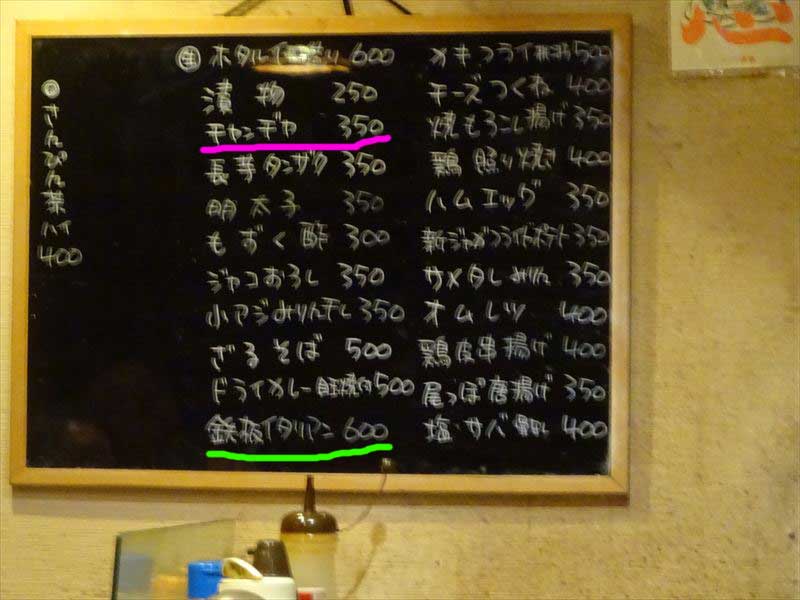 さんぴん茶ハイ 400
生 ホタルイカ 600
漬物 250
チャンヂャ 350
長芋タンザク 350
明太子 350
もずく酢 300
ジャコおろし 350
小アジみりん干し 350
ざるそば 500
ドライカレー 目玉焼付 500
鉄板イタリアン 600
カキフライ 500
チーズつくね 400
焼もろこし揚げ 350
鶏照り焼き 400
ハムエッグ 350
新ジャガフライドポテト 350
サメタレみりん 350
オムレツ 400
鶏皮串揚げ 400
尾っぽ唐揚げ 350
塩・サバ 400